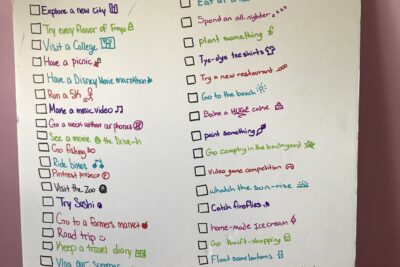 Explore a new City
Try every flavor of Froyo
Visit a College
Have a picnic
Have a Disney Movie marathon
Run a 5K
Make a music video
Go a week without our phones
See a movie @ the Drive-in
Go fishing
Ride bikes
Pintrest Project
Visit the Zoo
Try Sushi
Go to a farmers market
Road trip
Keep a travel diary
Vlog our summer
Eat at a
Spend an all-nighter
plant something
Tye-dye tee shirts
Try a new restaurant
Go to the beach
Bake a HUGE cake
paint something
Go camping in the backyard
Video game competition
whatch the sun-rise
Catch fireflies
home-made Icecream
Go thrift-shopping
Float some lanterns